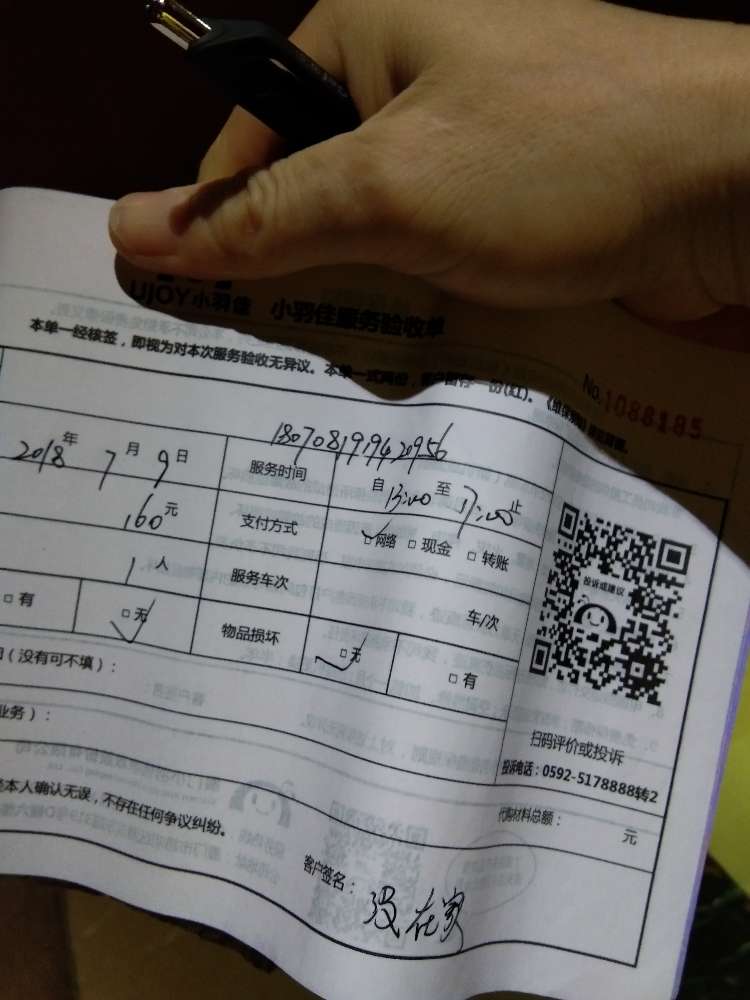 UJOY小羽佳 小羽佳服务验收单
本单一经核签，即视为对本次服务验收无异议。本单一式两份，
No.1086185
1807081979420956
2018年7月9日 服务时间 自13:00至17:00止
160元 支付方式 ☑网络 □现金 □转账
1人 服务车次 车/次
□有 ☑无 物品损坏 ☑无 □有
（没有可不填）：
业务）：
本人确认无误，不存在任何争议纠纷。
投诉或建议
扫码评价或投诉
投诉电话：0592-5178888转2
代购材料总额： 元
客户签名：没在家